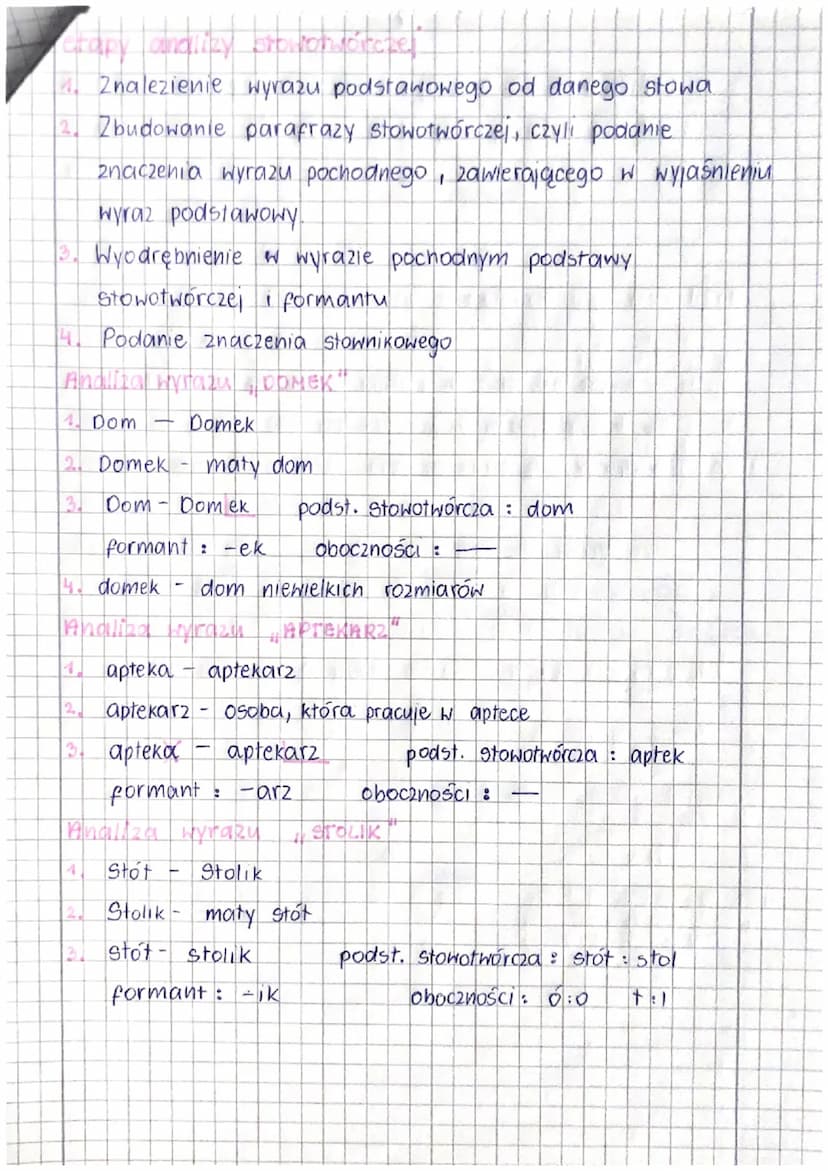 etapy analizy słowotwórczej
1. Znalezienie wyrazu podstawowego od danego słowa
2. Zbudowanie parafrazy słowotwórczej, czyli podanie
znaczenia wyrazu pochodnego, zawierającego w wyjaśnieniu
wyraz podstawowy.
3. Wyodrębnienie w wyrazie pochodnym podstawy
słowotwórczej i formantu
4. Podanie znaczenia słownikowego
Analiza wyrazu „DOMEK"
1. Dom — Domek
2. Domek - mały dom
3. Dom - Domek podst. słowotwórcza : dom
formant : -ek oboczności : —
4. domek - dom niewielkich rozmiarów
Analiza wyrazu „APTEKARZ"
1. apteka - aptekarz
2. aptekarz - osoba, która pracuje w aptece
3. apteka - aptekarz podst. słowotwórcza : aptek
formant : -arz oboczności : —
Analiza wyrazu „STOLIK"
1. Stół - Stolik
2. Stolik - mały stół
3. stół - stolik podst. słowotwórcza : stół : stol
formant : -ik oboczności : ó:o ł:l